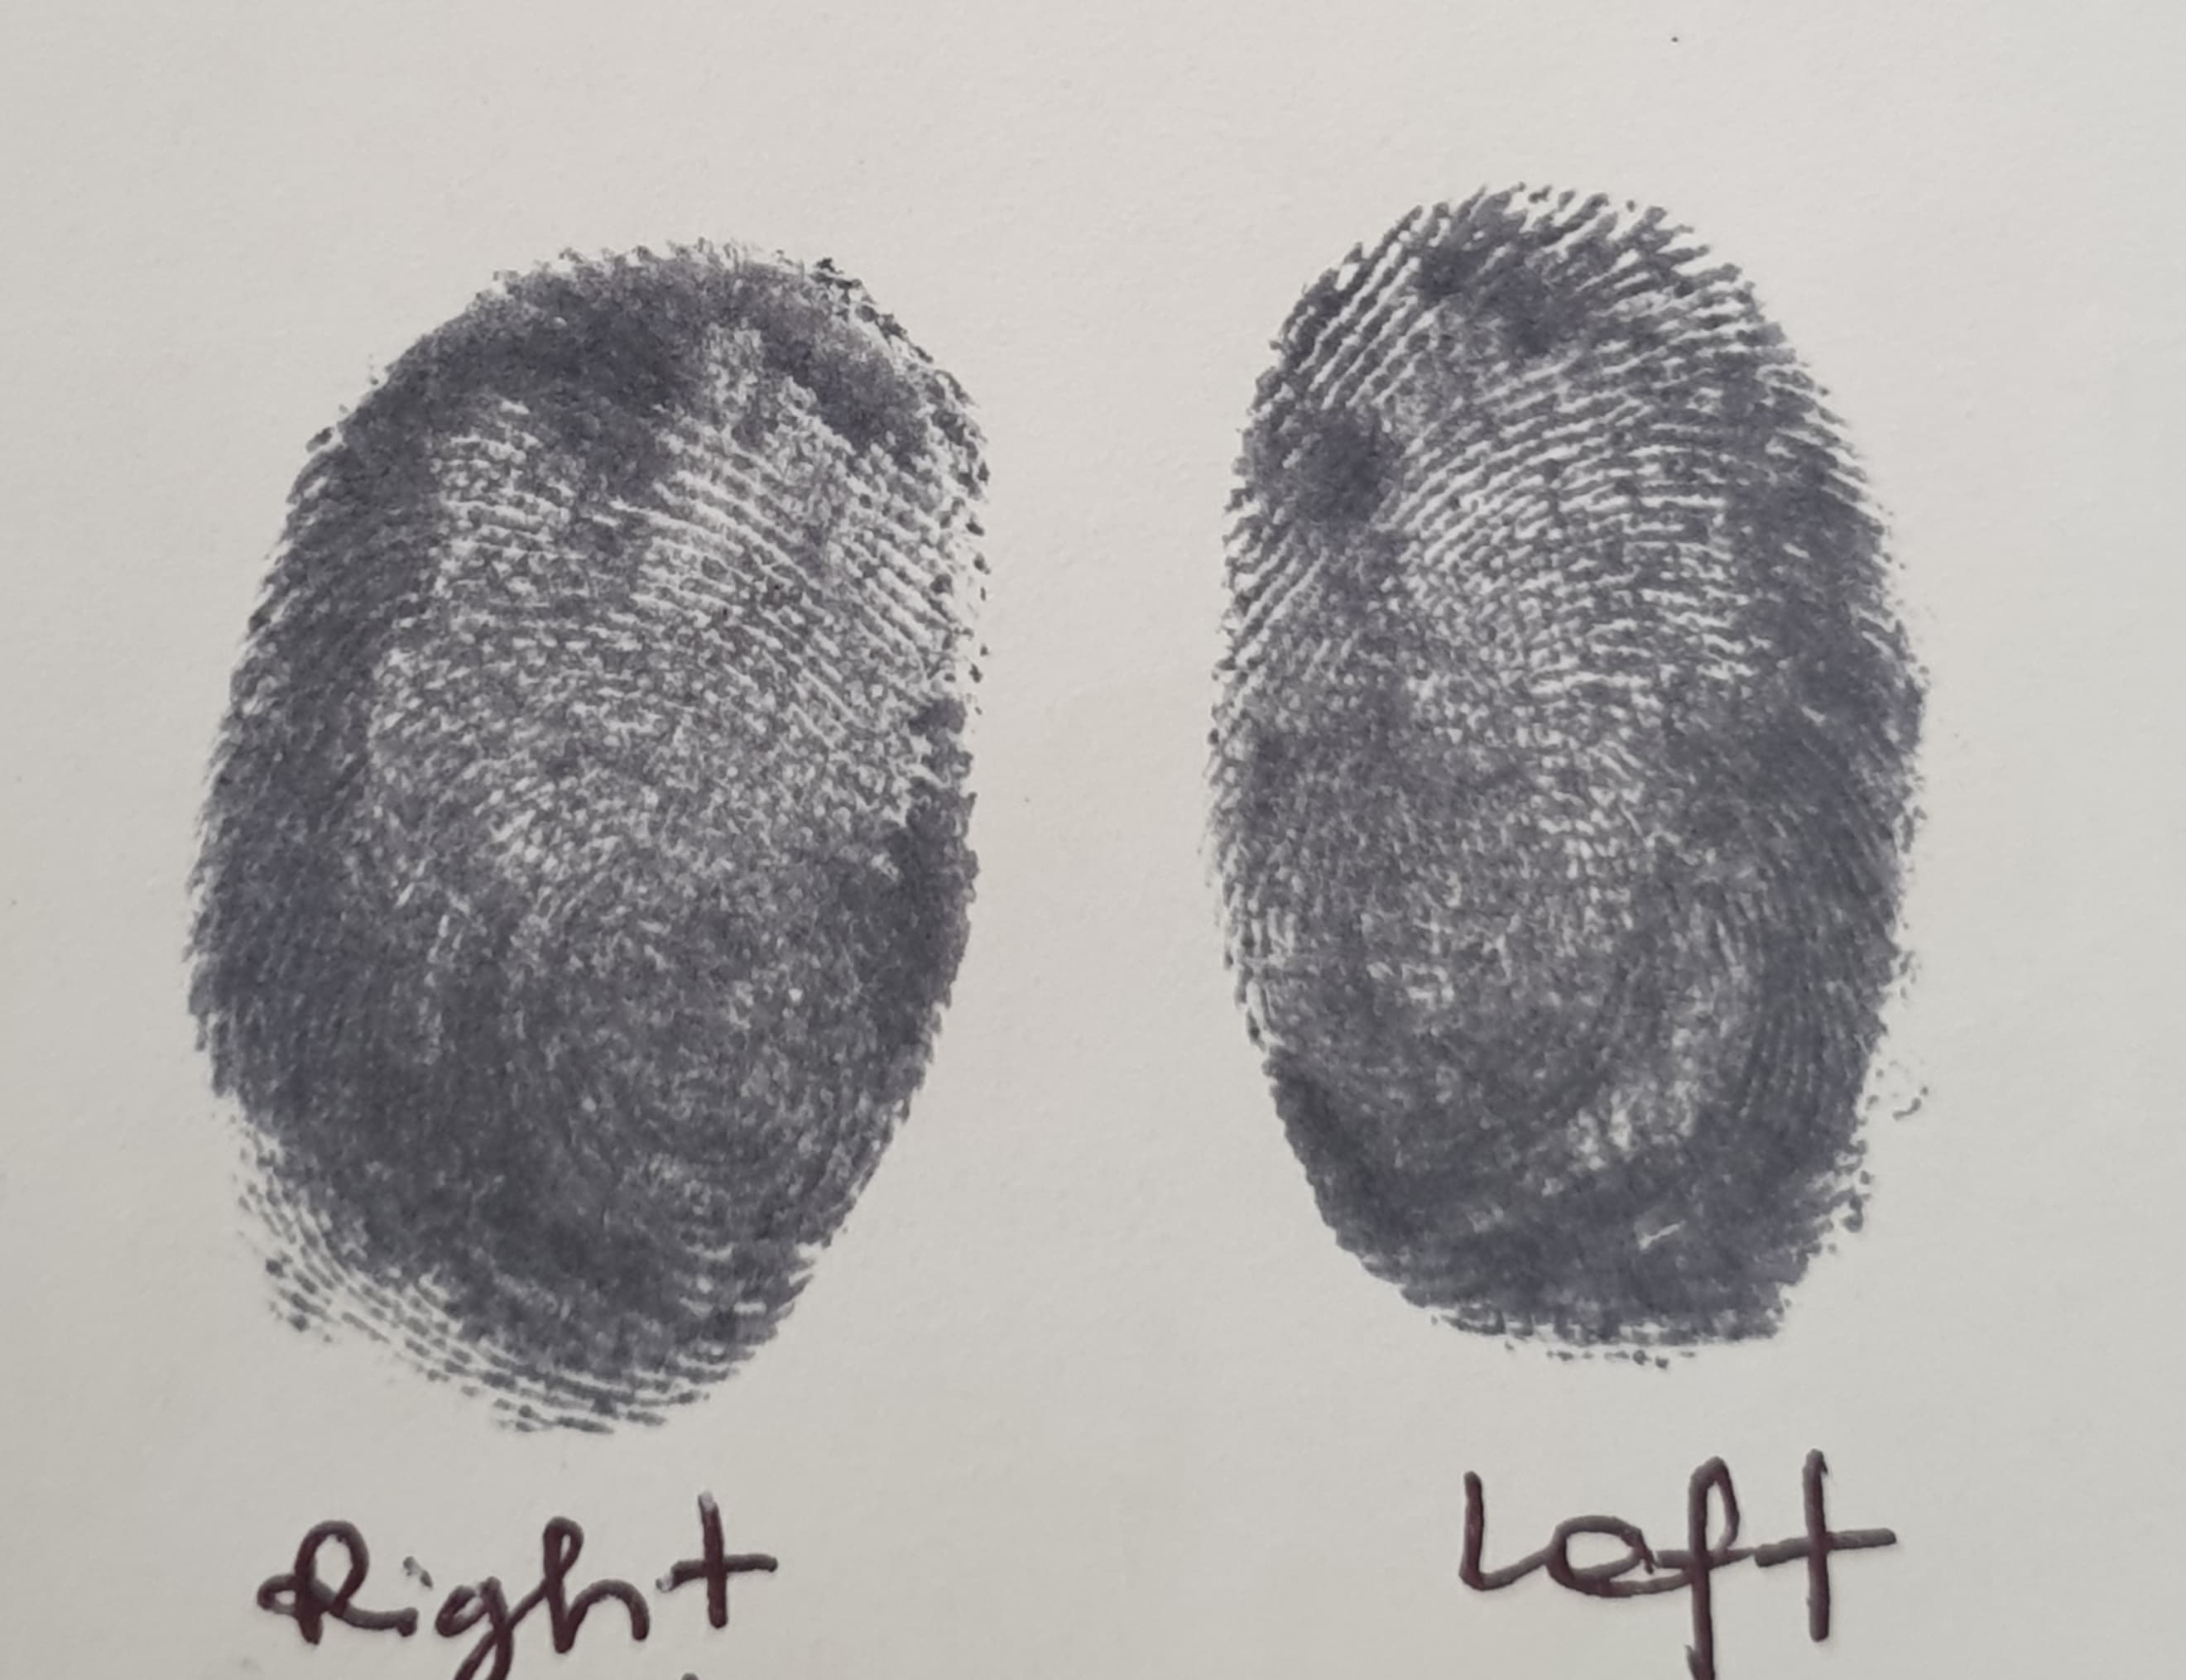 Right
Left